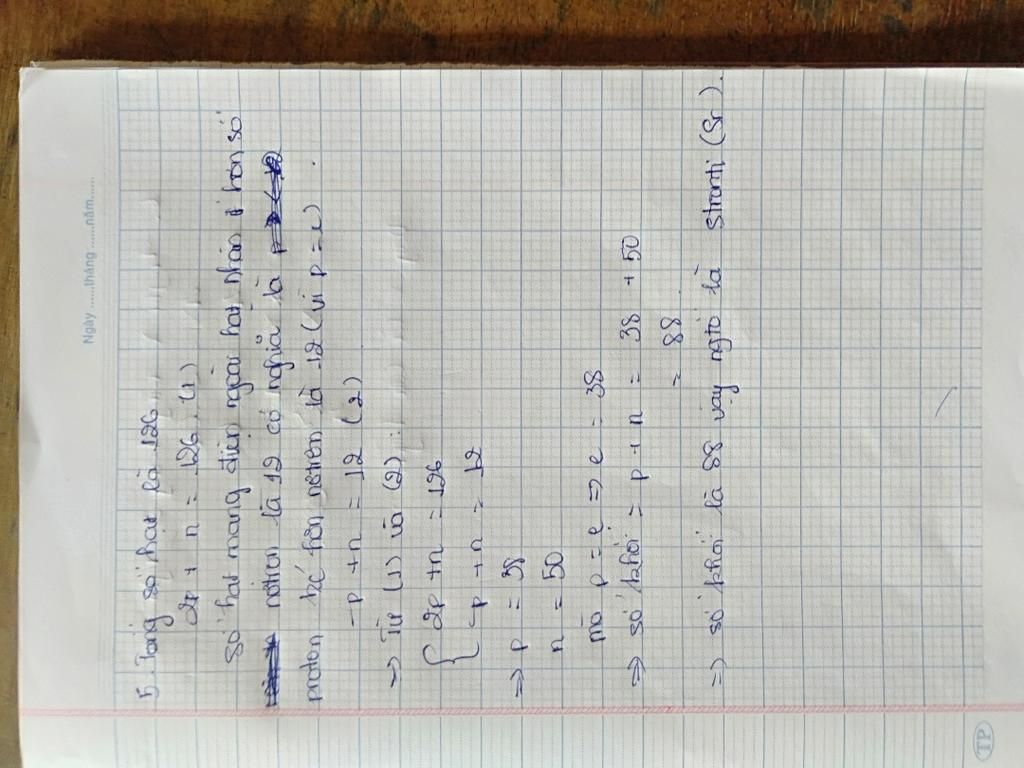 Ngày ......tháng ......năm......
5. Tổng số hạt là 126
2p + n = 126 (1)
Số hạt mang điện ngoài hạt nhân ít hơn số
nơtron là 12 có nghĩa là
proton bé hơn nơtron là 12 (vì p = e).
-p + n = 12 (2)
=> Từ (1) và (2):
{ 2p + n = 126
-p + n = 12
=> p = 38
n = 50
mà p = e => e = 38
=> số khối = p + n = 38 + 50
= 88
=> số khối là 88 vậy ngtố là Stronti (Sr).
TP